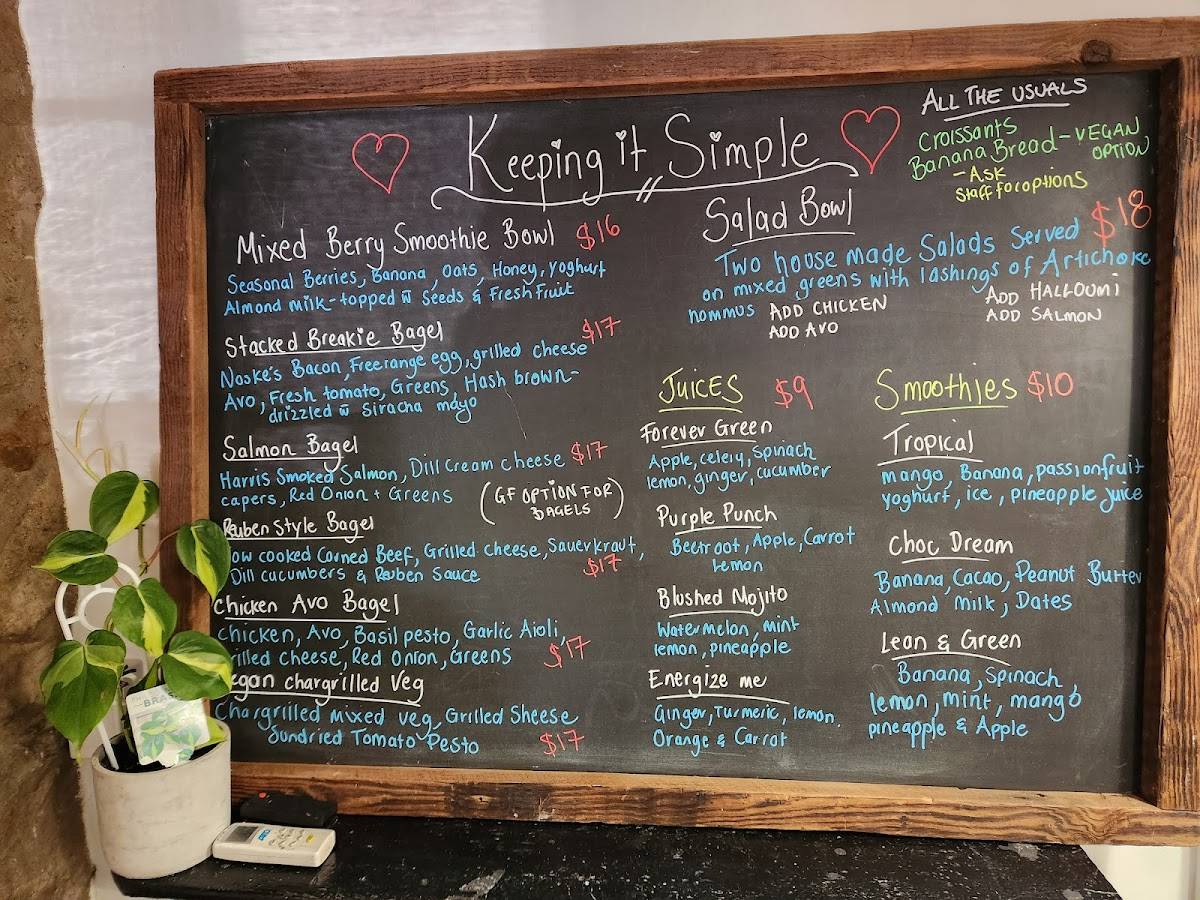 Keeping it Simple
ALL THE USUALS
Croissants
Banana Bread - VEGAN
OPTION
- Ask
Staff for options
Mixed Berry Smoothie Bowl $16
Seasonal Berries, Banana, oats, Honey, yoghurt
Almond milk - topped w̄ Seeds & Fresh Fruit
Stacked Breakie Bagel $17
Noske's Bacon, Freerange egg, grilled cheese
Avo, Fresh tomato, Greens, Hash brown -
drizzled w̄ Siracha mayo
Salmon Bagel
Harris Smoked Salmon, Dill Cream cheese $17
capers, Red Onion + Greens
(GF OPTION FOR
BAGELS)
Reuben Style Bagel
ow cooked Corned Beef, Grilled cheese, Sauerkraut,
Dill cucumbers & Reuben Sauce $17
Chicken Avo Bagel
chicken, Avo, Basil pesto, Garlic Aioli,
rilled cheese, Red Onion, Greens $17
egan chargrilled Veg
Chargrilled mixed veg, Grilled Sheese
Sundried Tomato Pesto $17
Salad Bowl
$18
Two house made Salads Served
on mixed greens with lashings of Artichoke
hommus ADD CHICKEN
ADD AVO
ADD HALLOUMI
ADD SALMON
JUICES $9
Forever Green
Apple, celery, Spinach
lemon, ginger, cucumber
Purple Punch
Beetroot, Apple, Carrot
Lemon
Blushed Mojito
Watermelon, mint
lemon, pineapple
Energize me
Ginger, Turmeric, lemon,
Orange & Carrot
Smoothies $10
Tropical
mango, Banana, passionfruit
yoghurt, ice, pineapple juice
Choc Dream
Banana, Cacao, Peanut Butter
Almond milk, Dates
Lean & Green
Banana, Spinach
lemon, mint, mango
pineapple & Apple
BRA